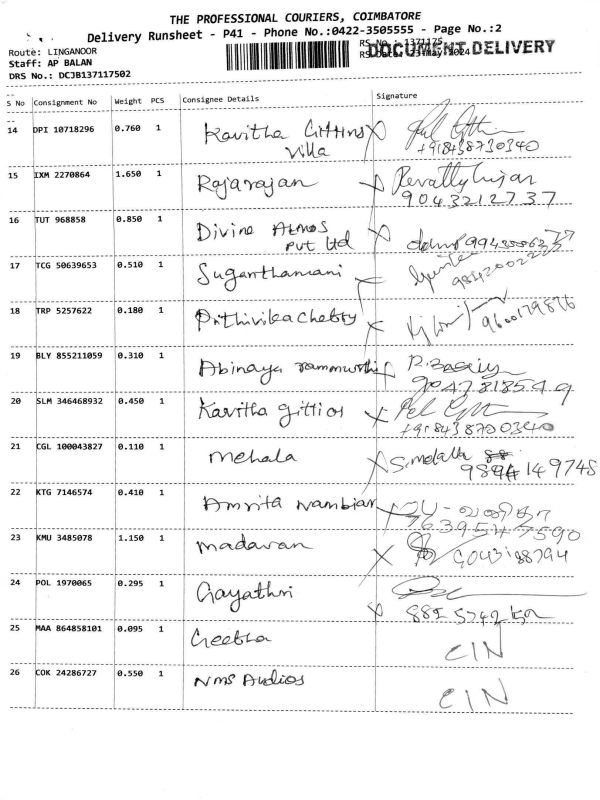 THE PROFESSIONAL COURIERS, COIMBATORE
Delivery Runsheet - P41 - Phone No.:0422-3505555 - Page No.:2
Route: LINGANOOR
RS No.: 1371175
Staff: AP BALAN
RS Date: 23-May-2024
DOCUMENT DELIVERY
DRS No.: DCJB137117502
S No Consignment No Weight PCS Consignee Details Signature
14 DPI 10718296 0.760 1 Kavitha Gittins X
Villa +918438730340
15 IXM 2270864 1.650 1 Rajarajan X
9043212737
16 TUT 968858 0.850 1 Divine Atmos X
Pvt Ltd
17 TCG 50639653 0.510 1 Suganthamani
18 TRP 5257622 0.180 1 Prithivika Chetty X 9600179876
19 BLY 855211059 0.310 1 Abinaya rammurthi
9047818549
20 SLM 346468932 0.450 1 Kavitha gittios X
+918438700340
21 CGL 100043827 0.110 1 mehala X S. mekala
9894149748
22 KTG 7146574 0.410 1 Amrita Nambiar X
7639547590
23 KMU 3485078 1.150 1 madavan X
24 POL 1970065 0.295 1 Gayathri X
25 MAA 864858101 0.095 1 Geetha CIN
26 COK 24286727 0.550 1 NMS Audios CIN